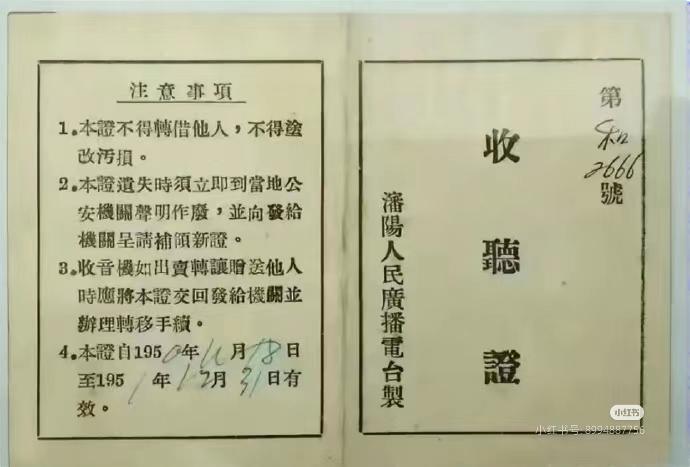 注意事項
1.本證不得轉借他人,不得塗
改汚損。
2.本證遺失時須立即到當地公
安機關聲明作廢,並向發給
機關呈請補領新證。
3.收音機如出賣轉讓贈送他人
時應將本證交回發給機關並
辦理轉移手續。
4.本證自1950年11月18日
至1951年12月31日有
效。
第
和
2666
號
收聽證
瀋陽人民廣播電台製
小红书
小红书号:8994887756